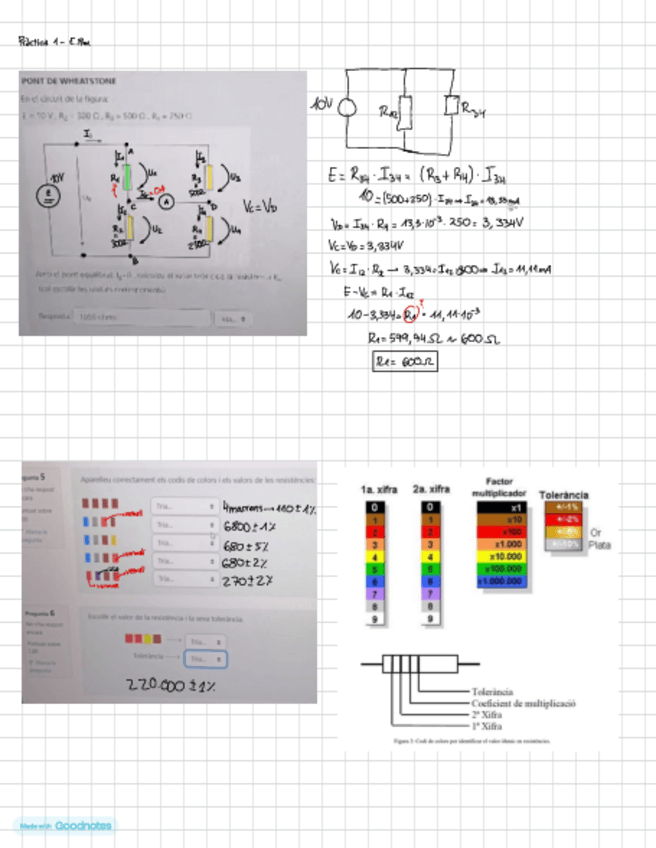 Pràctica 1 -
PONT DE WHEATSTONE
En el circuit de la figura:
E = 10 V, R2 = 300 Ω, R3 = 500 Ω, R4 = 250 Ω
I1
A
10V
E
R1
U1
I3
R3
500Ω
U3
C
A
D
R2
300Ω
U2
R4
250Ω
U4
B
VC=VD
Resposta:
10V
R12
R34
E = R34 · I34 = (R3 + R4) · I34
10 = (500+250) · I34 → I34 = 13,33mA
VD = I34 · R4 = 13,3·10⁻³ · 250 = 3,334V
VC = VD = 3,334V
VC = I12 · R2 → 3,334 = I12 · 300 ⇒ I12 = 11,11mA
E - VC = R1 · I12
10 - 3,334 = R1 · 11,11·10⁻³
?
R1 = 599,94Ω ~ 600Ω
R1 = 600Ω
Pregunta 5
Aparelleu correctament els codis de colors i els valors de les resistències:
Tria...
4 marrons → 110 ± 1%
Tria...
6800 ± 1%
Tria...
680 ± 5%
Tria...
680 ± 2%
Tria...
270 ± 2%
Pregunta 6
Escollir el valor de la resistència i la seva tolerància.
Tria...
Tolerància
Tria...
220.000 ± 1%
1a. xifra
2a. xifra
Factor multiplicador
Tolerància
0 0 x1 +/-1%
1 1 x10 +/-2%
2 2 x100 +/-5%
3 3 x1.000 +/-10%
4 4 x10.000
5 5 x100.000
6 6 x1.000.000
7 7
8 8
9 9
Or
Plata
Tolerància
Coeficient de multiplicació
2ª Xifra
1ª Xifra
Figura 3: Codi de colors per identificar el valor òhmic en resistències.
Made with Goodnotes